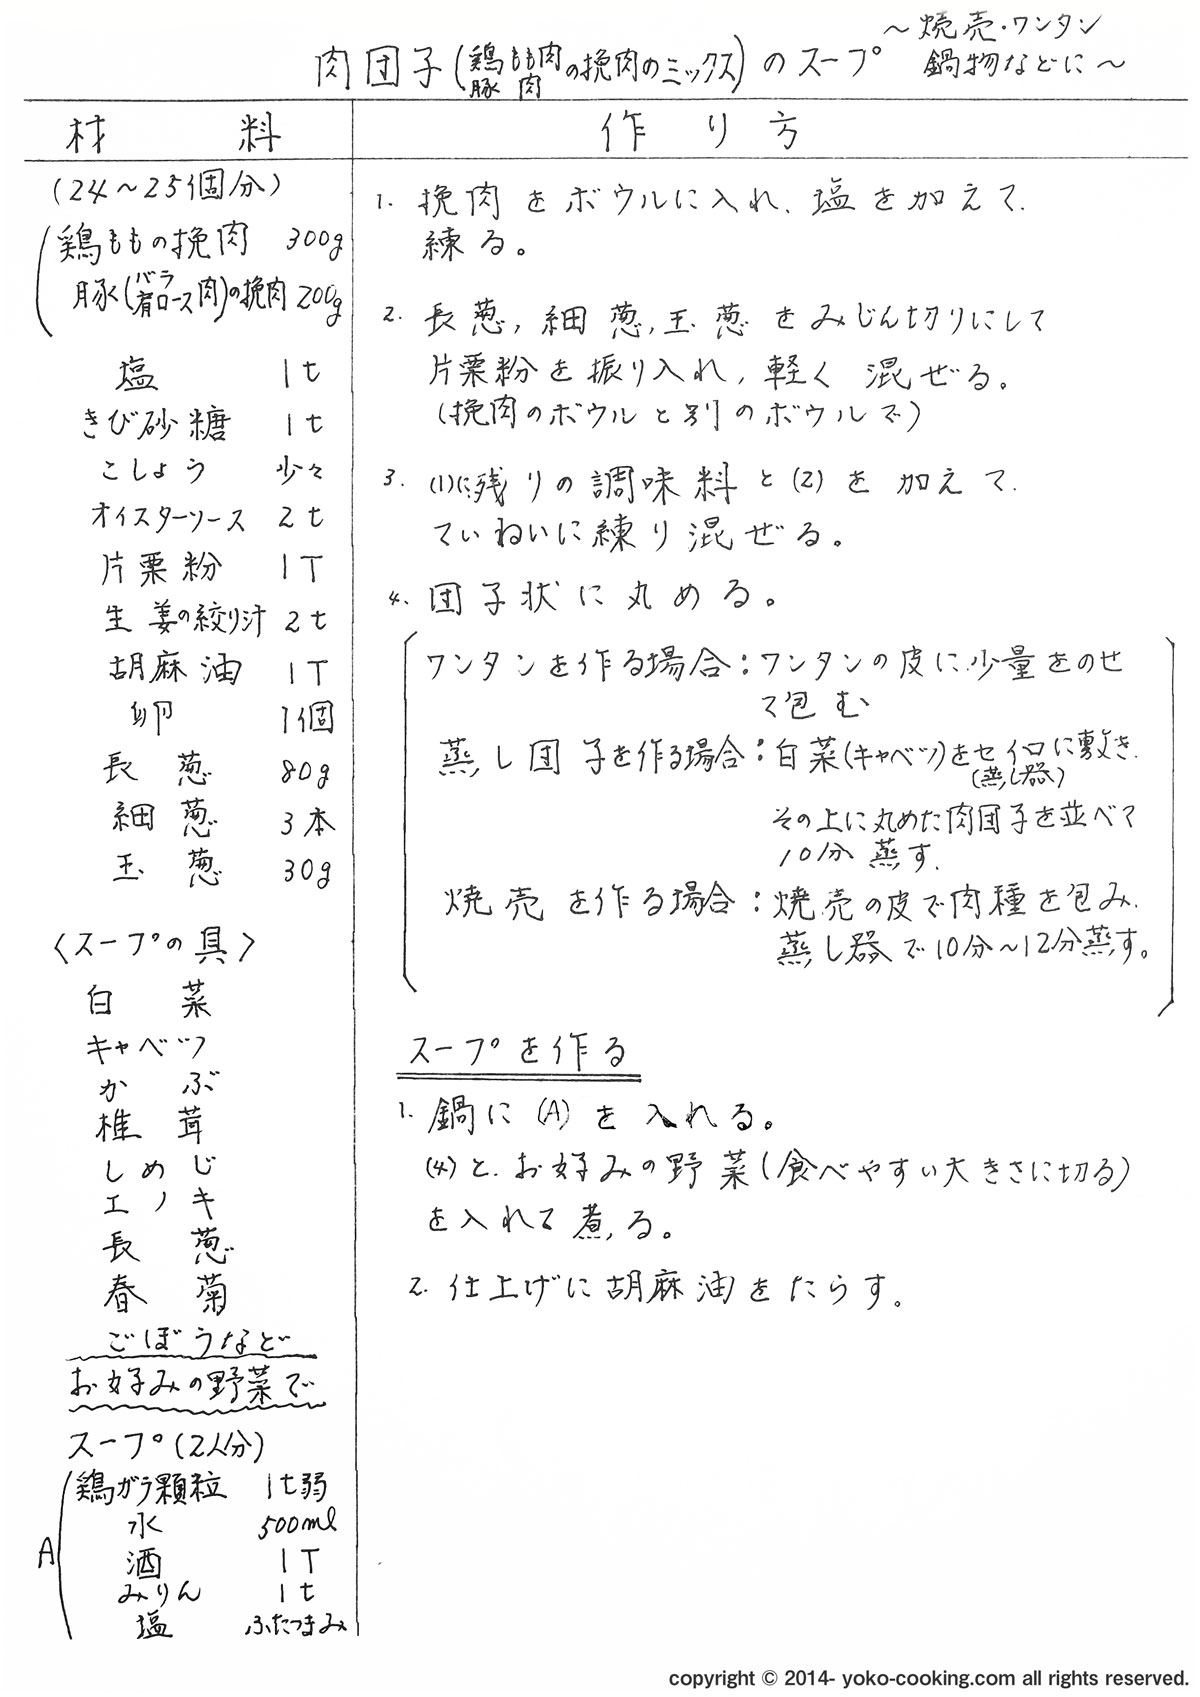 肉団子(鶏もも肉 豚肉の挽肉のミックス)のスープ
～焼売・ワンタン
鍋物などに～
材料
作り方
(24～25個分)
鶏ももの挽肉 300g
豚(バラ 肩ロース肉)の挽肉 200g
塩 1t
きび砂糖 1t
こしょう 少々
オイスターソース 2t
片栗粉 1T
生姜の絞り汁 2t
胡麻油 1T
卵 1個
長葱 80g
細葱 3本
玉葱 30g
〈スープの具〉
白菜
キャベツ
かぶ
椎茸
しめじ
エノキ
長葱
春菊
ごぼうなど
お好みの野菜で
スープ(2人分)
A
鶏ガラ顆粒 1t弱
水 500ml
酒 1T
みりん 1t
塩 ふたつまみ
1. 挽肉をボウルに入れ、塩を加えて、
練る。
2. 長葱,細葱,玉葱をみじん切りにして
片栗粉を振り入れ,軽く混ぜる。
(挽肉のボウルと別のボウルで)
3. (1)に残りの調味料と(2)を加えて、
ていねいに練り混ぜる。
4. 団子状に丸める。
ワンタンを作る場合:ワンタンの皮に少量をのせ
て包む
蒸し団子を作る場合:白菜(キャベツ)をセイロに敷き、
(蒸し器)
その上に丸めた肉団子を並べて
10分蒸す。
焼売を作る場合:焼売の皮で肉種を包み、
蒸し器で10分～12分蒸す。
スープを作る
1. 鍋に(A)を入れる。
(4)と、お好みの野菜(食べやすい大きさに切る)
を入れて煮る。
2. 仕上げに胡麻油をたらす。
copyright © 2014- yoko-cooking.com all rights reserved.